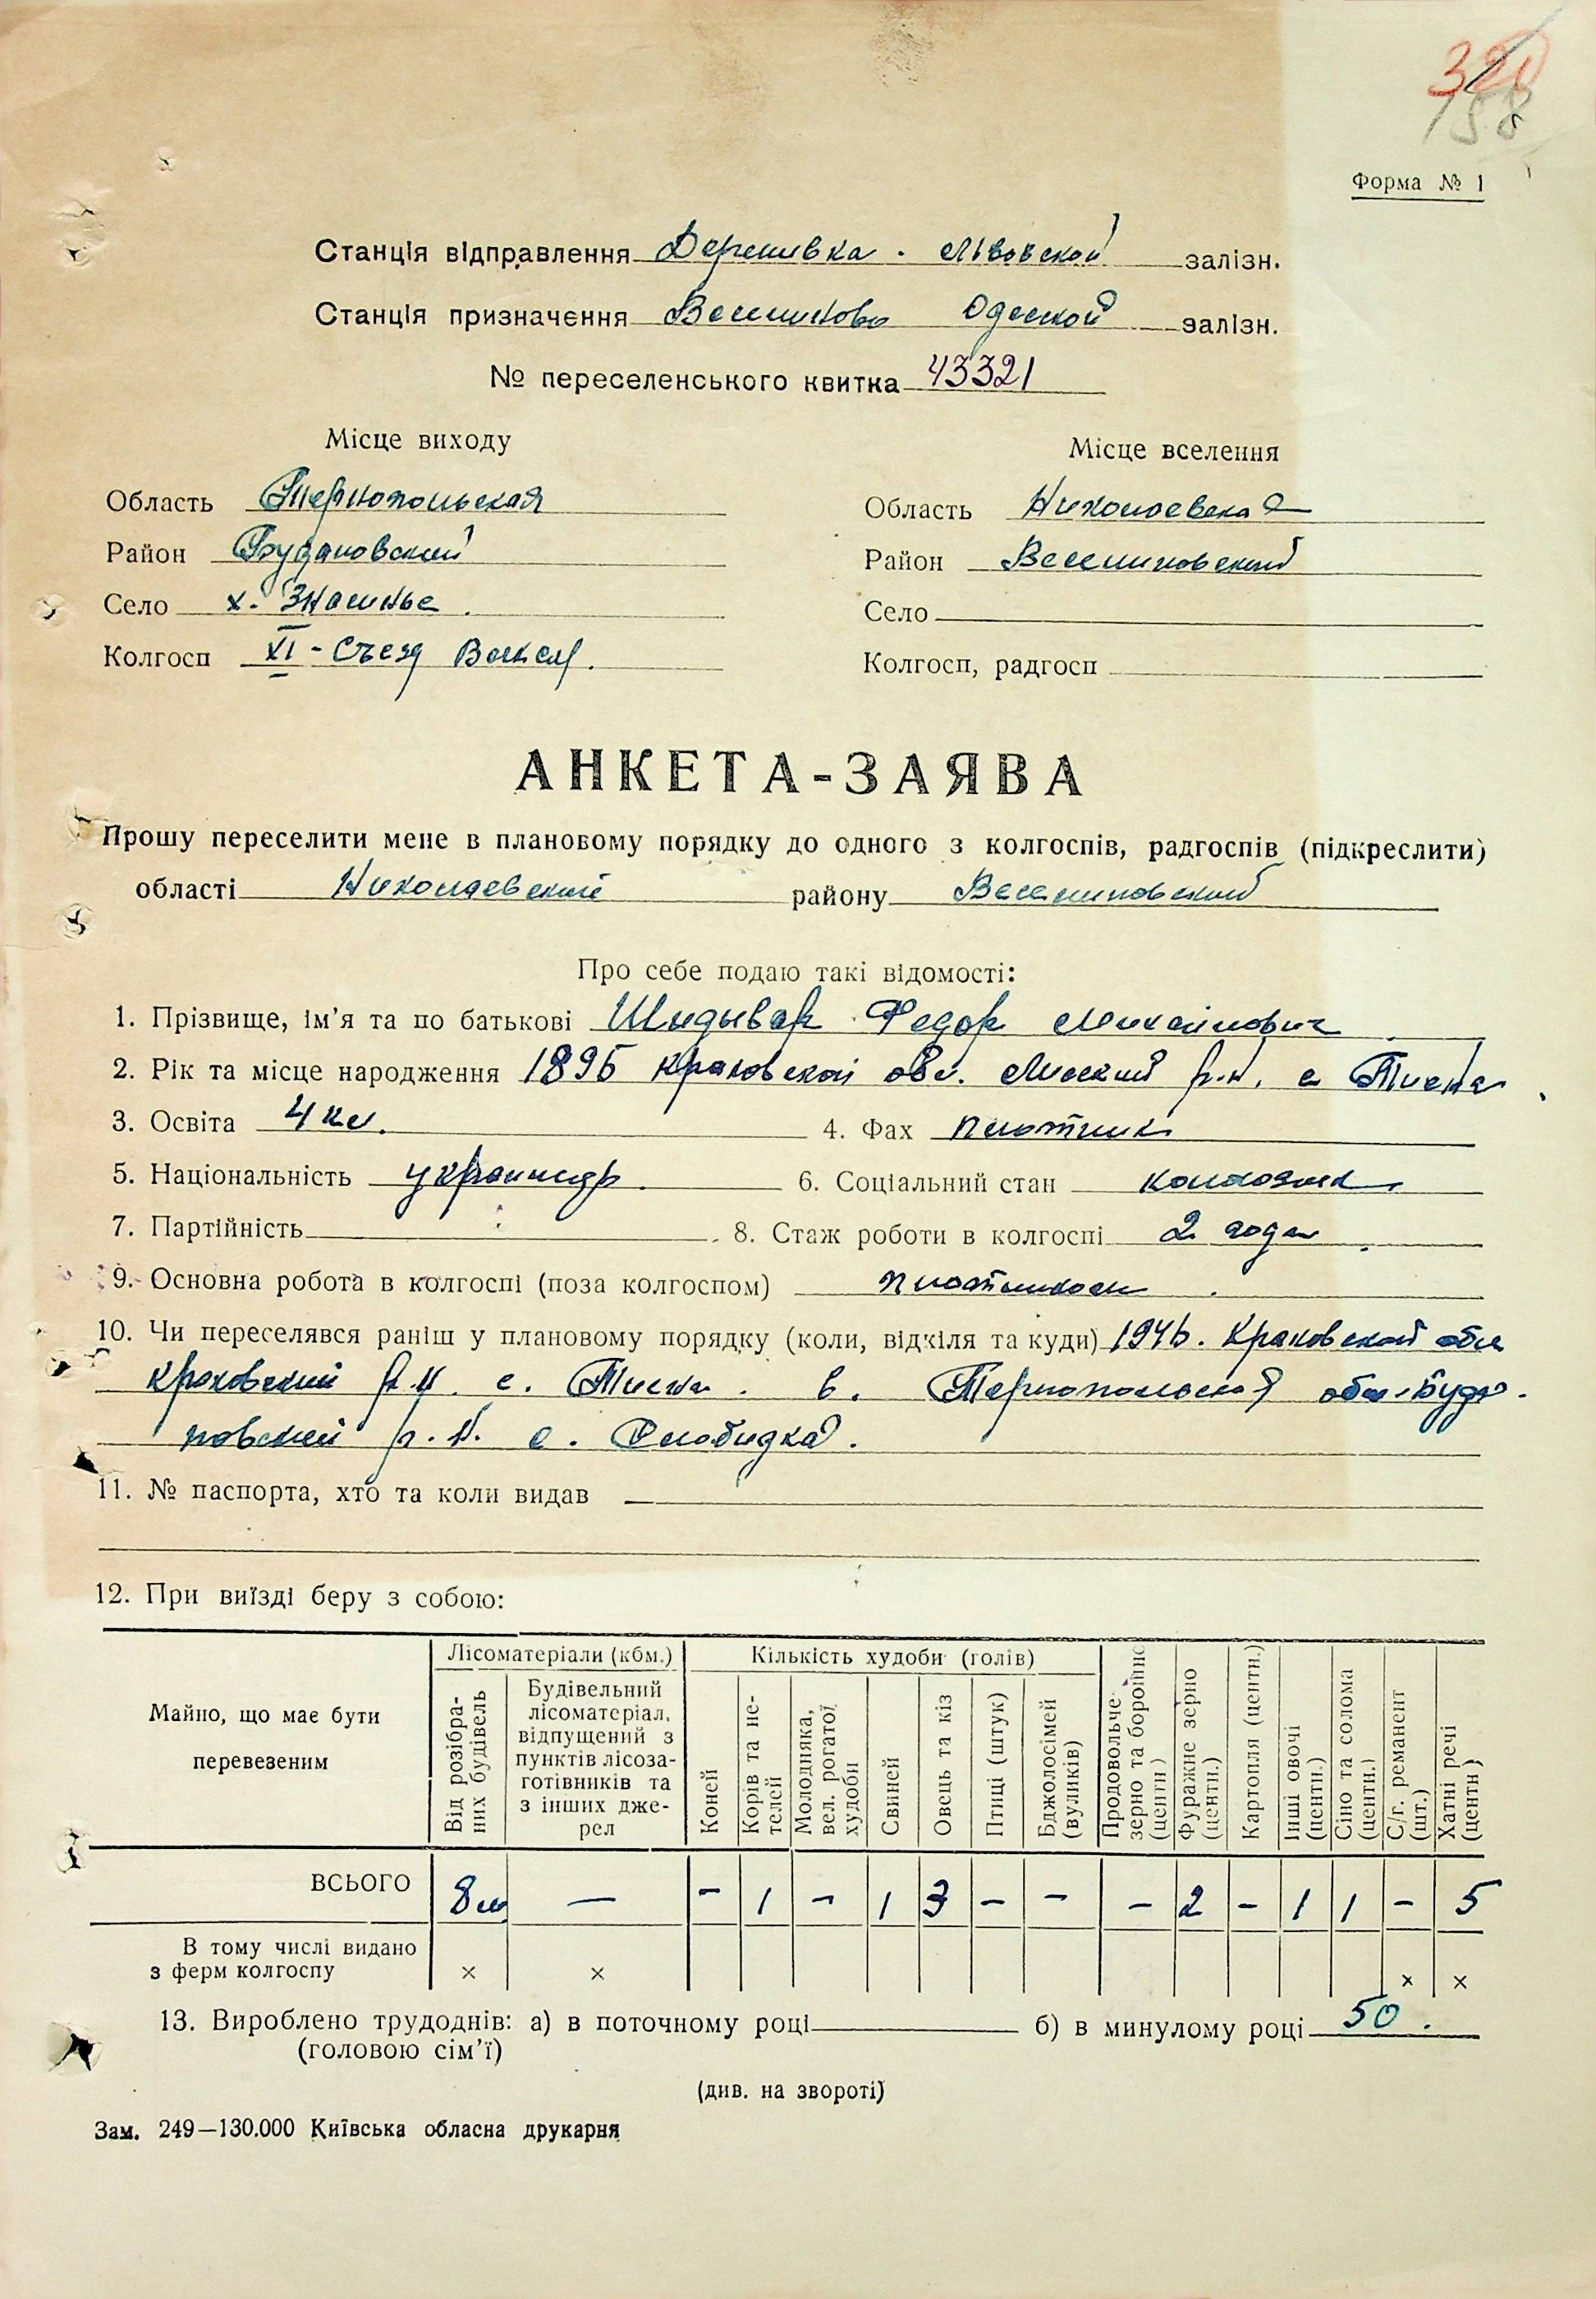 320
158
Форма № 1
Станція відправлення Деренивка. Львовской залізн.
Станція призначення Веселиново Одесской залізн.
№ переселенського квитка 43321
Місце виходу
Місце вселення
Область Тернопольская
Область Николаевская
Район Будановский
Район Веселиновский
Село х. Знесинье.
Село
Колгосп XI-Съезд Влксм.
Колгосп, радгосп
АНКЕТА-ЗАЯВА
Прошу переселити мене в плановому порядку до одного з колгоспів, радгоспів (підкреслити)
області Николаевский району Веселиновский
Про себе подаю такі відомості:
1. Прізвище, ім'я та по батькові Шидывар Федор Михайлович
2. Рік та місце народження 1895 Краковской обл. Лиский р-н. с Тисна.
3. Освіта 4 кл. 4. Фах плотник
5. Національність украинец. 6. Соціальний стан колхозник
7. Партійність 8. Стаж роботи в колгоспі 2 года.
9. Основна робота в колгоспі (поза колгоспом) плотником.
10. Чи переселявся раніш у плановому порядку (коли, відкіля та куди) 1945. Краковской обл
Краковский р.н. с. Тисна. в. Тернопольская обл. Буда-
новский р.н. с. Слобидка.
11. № паспорта, хто та коли видав —
12. При виїзді беру з собою:
Майно, що має бути перевезеним
Лісоматеріали (кбм.)
Кількість худоби (голів)
Від розібраних будівель
Будівельний лісоматеріал, відпущений з пунктів лісозаготівників та з інших джерел
Коней
Корів та нетелей
Молодняка, вел. рогатої худоби
Свиней
Овець та кіз
Птиці (штук)
Бджолосімей (вуликів)
Продовольче зерно та борошно (центн)
Фуражне зерно (центн.)
Картопля (центн.)
Інші овочі (центн.)
Сіно та солома (центн.)
С/г. реманент (шт.)
Хатні речі (центн)
ВСЬОГО 8м — - 1 - 1 3 - - - 2 - 1 1 - 5
В тому числі видано
з ферм колгоспу × × × ×
13. Вироблено трудоднів: а) в поточному році б) в минулому році 50.
(головою сім'ї)
(див. на звороті)
Зам. 249—130.000 Київська обласна друкарня